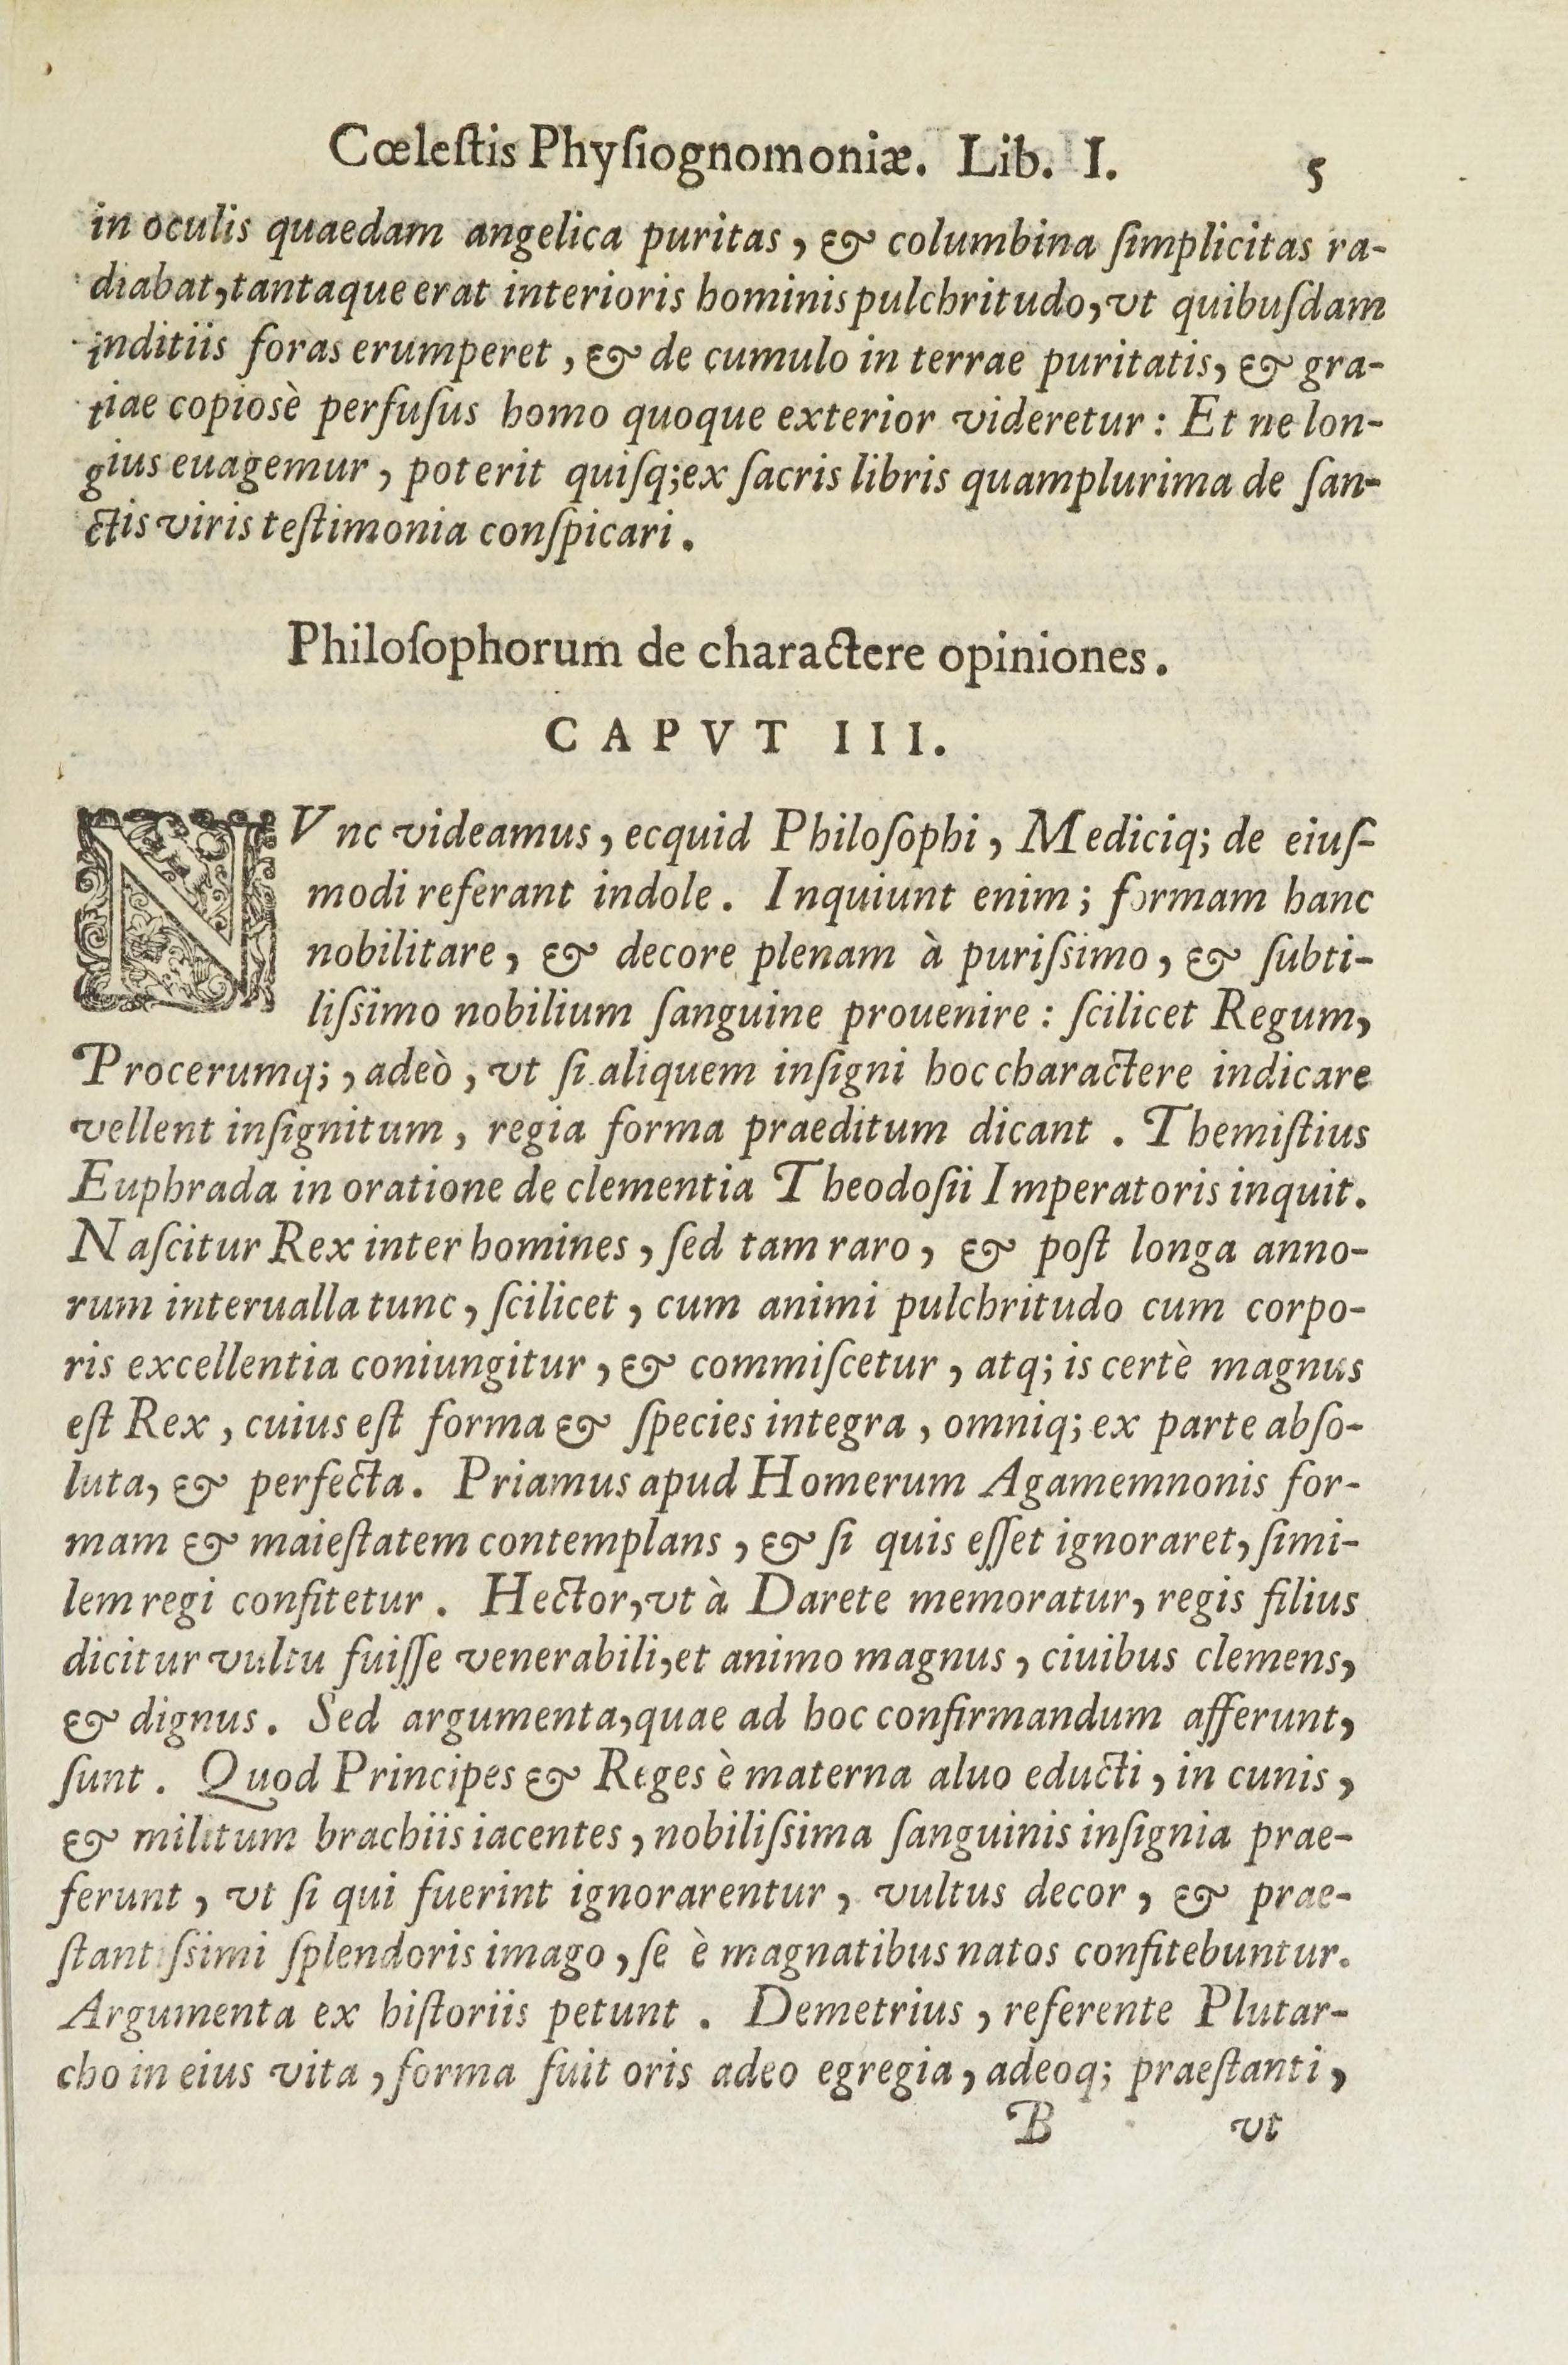 Cœleſtis Phyſiognomoniæ. Lib. I. 5
in oculis quaedam angelica puritas, & columbina ſimplicitas ra-
diabat, tantaque erat interioris hominis pulchritudo, vt quibuſdam
inditiis foras erumperet, & de cumulo in terrae puritatis, & gra-
tiae copiosè perfuſus homo quoque exterior videretur: Et ne lon-
gius euagemur, poterit quiſq; ex ſacris libris quamplurima de ſan-
ctis viris teſtimonia conſpicari.
Philoſophorum de charactere opiniones.
CAPVT III.
NVnc videamus, ecquid Philoſophi, Mediciq; de eiuſ-
modi referant indole. Inquiunt enim; formam hanc
nobilitare, & decore plenam à puriſsimo, & ſubti-
liſsimo nobilium ſanguine prouenire: ſcilicet Regum,
Procerumq;, adeò, vt ſi aliquem inſigni hoc charactere indicare
vellent inſignitum, regia forma praeditum dicant. Themiſtius
Euphrada in oratione de clementia Theodoſii Imperatoris inquit.
Naſcitur Rex inter homines, ſed tam raro, & poſt longa anno-
rum interualla tunc, ſcilicet, cum animi pulchritudo cum corpo-
ris excellentia coniungitur, & commiſcetur, atq; is certè magnus
eſt Rex, cuius eſt forma & ſpecies integra, omniq; ex parte abſo-
luta, & perfecta. Priamus apud Homerum Agamemnonis for-
mam & maieſtatem contemplans, & ſi quis eſſet ignoraret, ſimi-
lem regi confitetur. Hector, vt à Darete memoratur, regis filius
dicitur vultu fuiſſe venerabili, et animo magnus, ciuibus clemens,
& dignus. Sed argumenta, quae ad hoc confirmandum afferunt,
ſunt. Quod Principes & Reges è materna aluo educti, in cunis,
& militum brachiis iacentes, nobiliſsima ſanguinis inſignia prae-
ferunt, vt ſi qui fuerint ignorarentur, vultus decor, & prae-
ſtantiſsimi ſplendoris imago, ſe è magnatibus natos confitebuntur.
Argumenta ex hiſtoriis petunt. Demetrius, referente Plutar-
cho in eius vita, forma fuit oris adeo egregia, adeoq; praeſtanti,
B vt